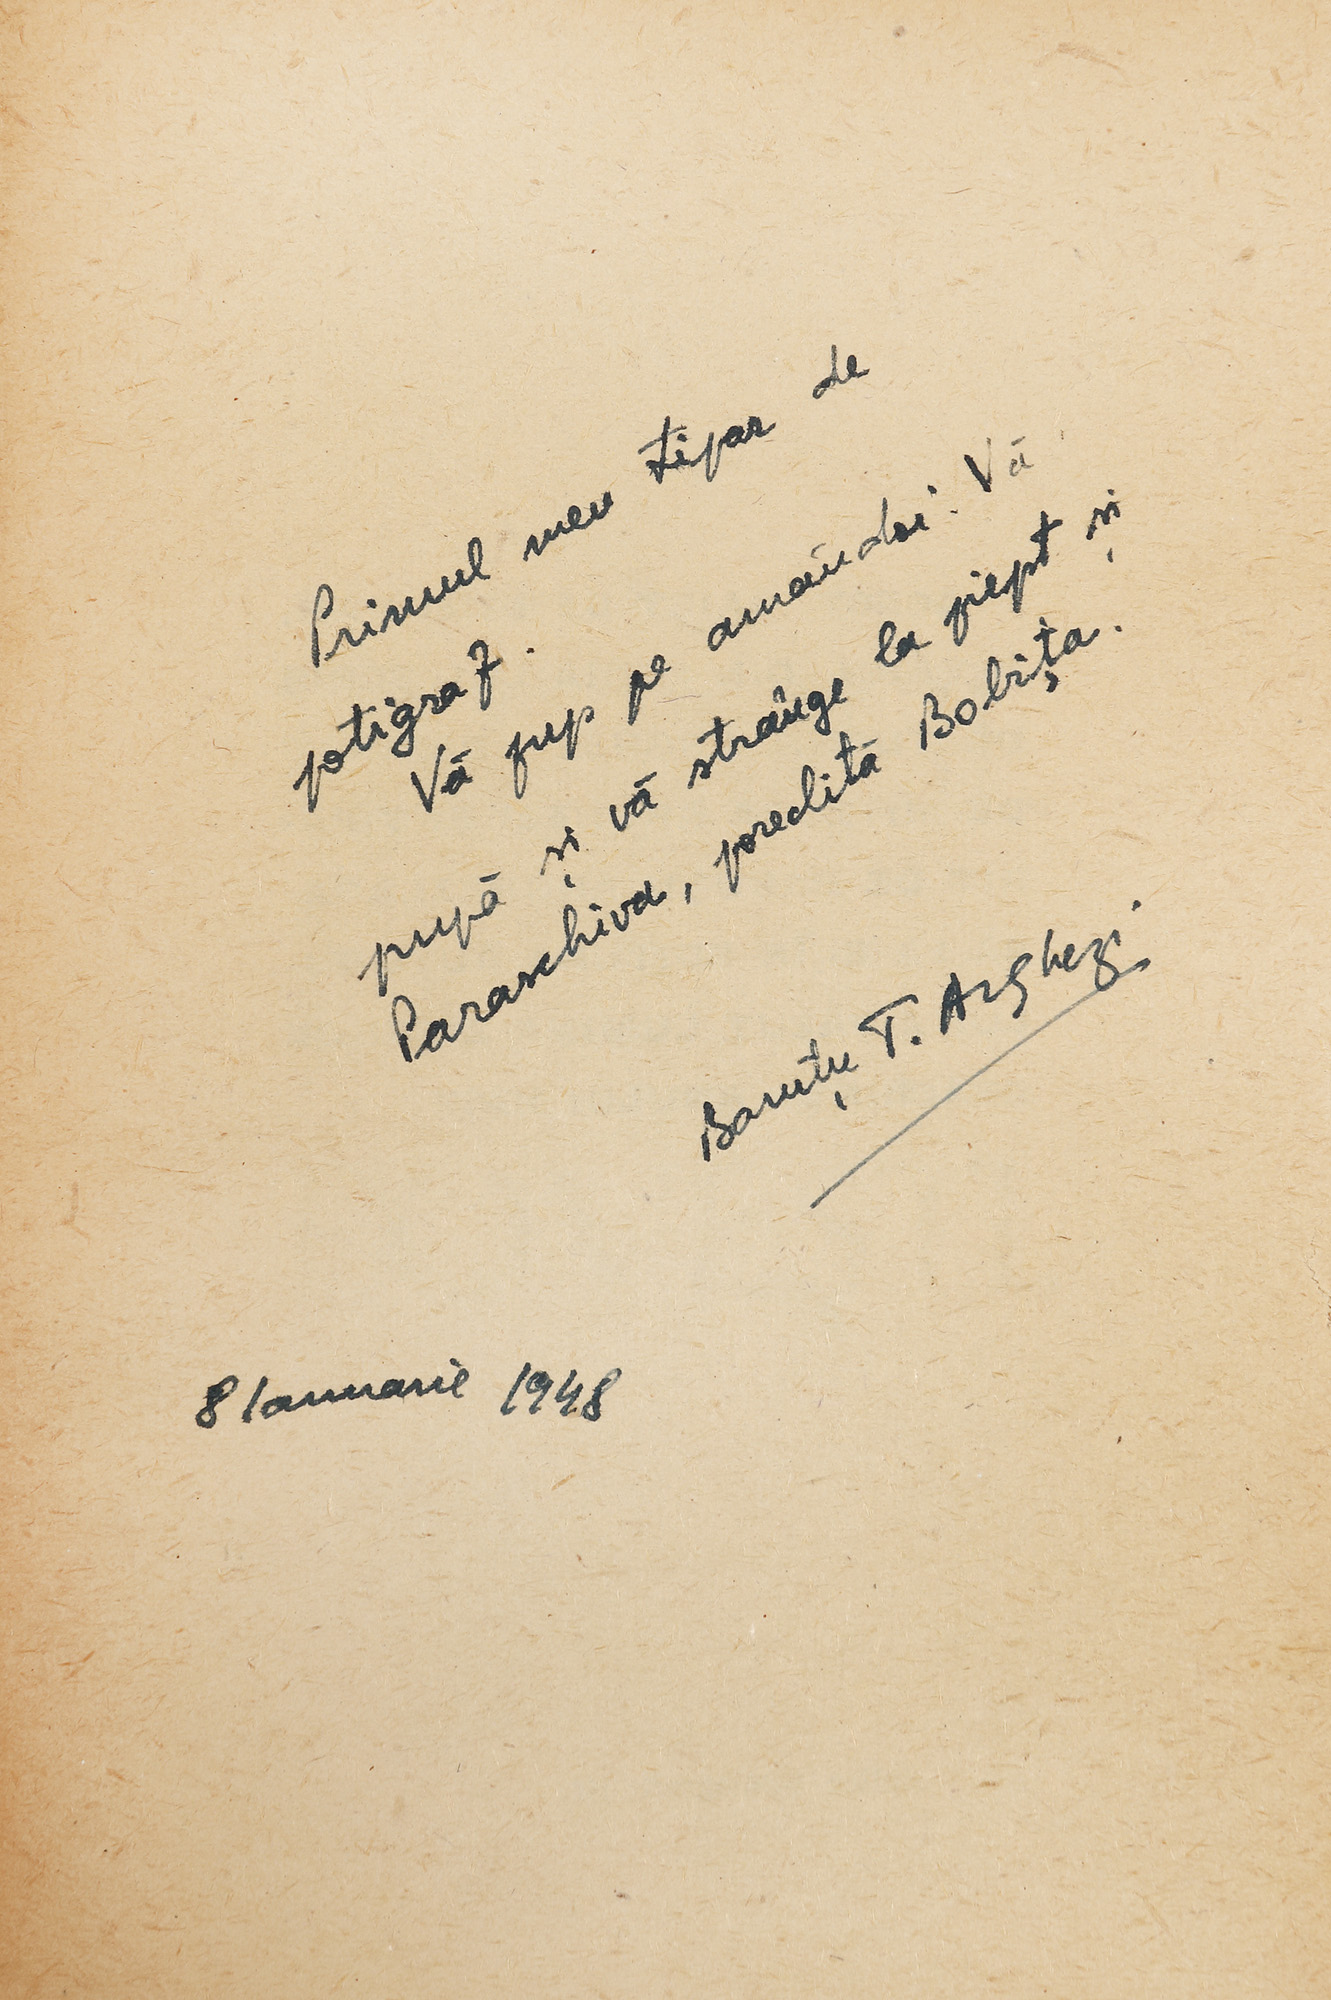 Primul meu tipar de
potigraf.
Vă pup pe amândoi. Vă
pupă și vă strânge la piept și
Paraschiva, poreclită Bobița.
Baruțu T. Arghezi
8 Ianuarie 1948